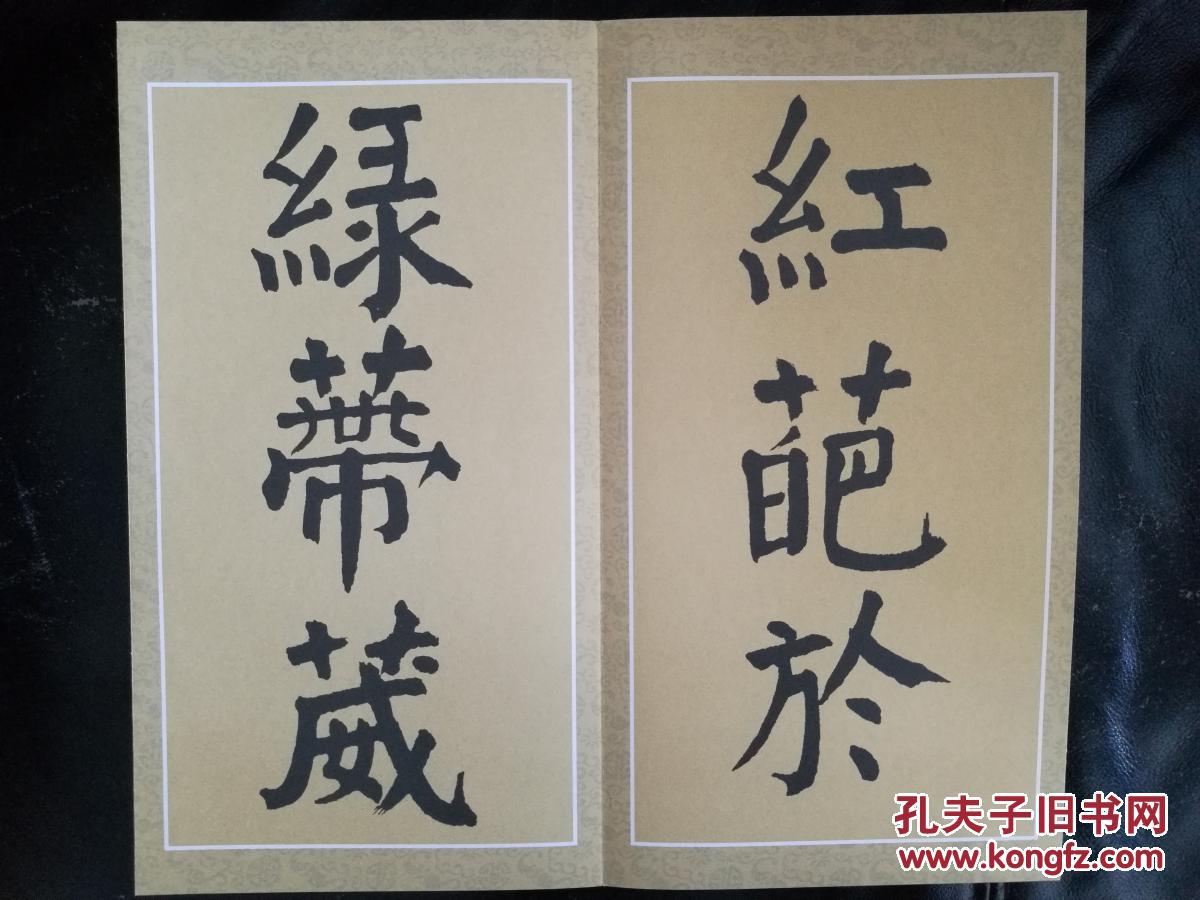 紅葩於
綠蔕葳
孔夫子旧书网
www.kongfz.com